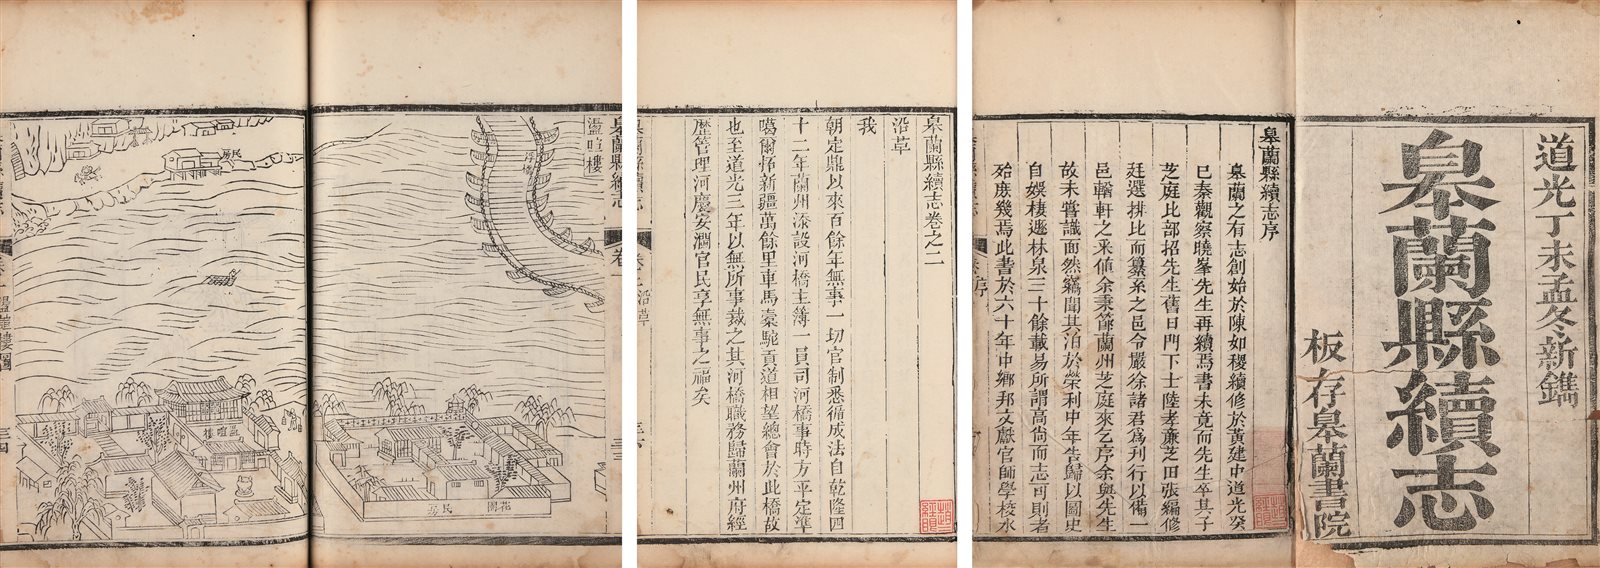 道光丁未孟冬新鐫
皋蘭縣續志
板存皋蘭書院
皋蘭縣續志序
皋蘭之有志創始於陳如稷續修於黃建中道光癸
巳秦觀察曉峯先生再續焉書未竟而先生卒其子
芝庭比部招先生舊日門下士陸孝亷芝田張編修
廷選排比而纂系之邑令嚴徐諸君爲刋行以備一
邑輶軒之采値余秉節蘭州芝庭來乞序余與先生
故未嘗識面然竊聞其泊於榮利中年告歸以圖史
自娛棲遯林泉三十餘載易所謂高尙而志可則者
始庶幾焉此書於六十年中鄉邦文獻官師學校水
皋蘭縣續志卷之二
沿革
我
朝定鼎以來百餘年無事一切官制悉循成法自乾隆四
十二年蘭州添設河橋主簿一員司河橋事時方平定準
噶爾怀新疆萬餘里車馬橐駝貢道相望總會於此橋故
也至道光三年以無所事裁之其河橋職務歸蘭州府經
歷管理河慶安瀾官民享無事之福矣
卷之二沿革
皋蘭縣續志
卷一
溫喧樓
浮橋
民房
花園
民房